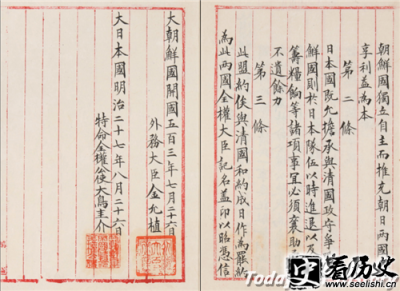 朝鮮國獨立自主而推充朝日兩國
享利益為本
第二條
日本國既允擔承與清國攻守爭
鮮國則於日本隊伍以時進退以及
籌糧餉等諸項事宜必須襄助
不遺餘力
第三條
此盟約俟與清國和約成日作為罷約
為此兩國全權大臣記名蓋印以昭憑信
大朝鮮國開國五百三年七月二十六日
外務大臣金允植
大日本國明治二十七年八月二十六日
特命全權公使大鳥圭介
看历史
www.seelishi.cn